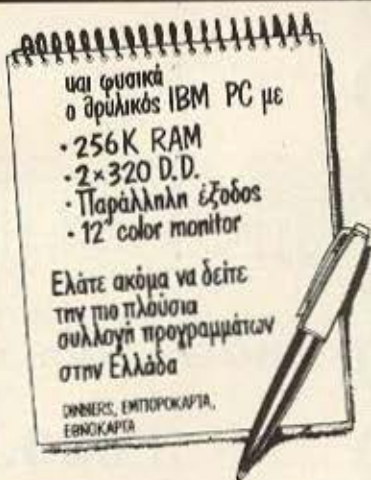 και φυσικά
ο θρυλικός IBM PC με
• 256K RAM
• 2×320 D.D.
• Παράλληλη έξοδος
• 12" color monitor
Ελάτε ακόμα να δείτε
την πιο πλούσια
συλλογή προγραμμάτων
στην Ελλάδα
DINNERS, ΕΜΠΟΡΟΚΑΡΤΑ,
ΕΘΝΟΚΑΡΤΑ